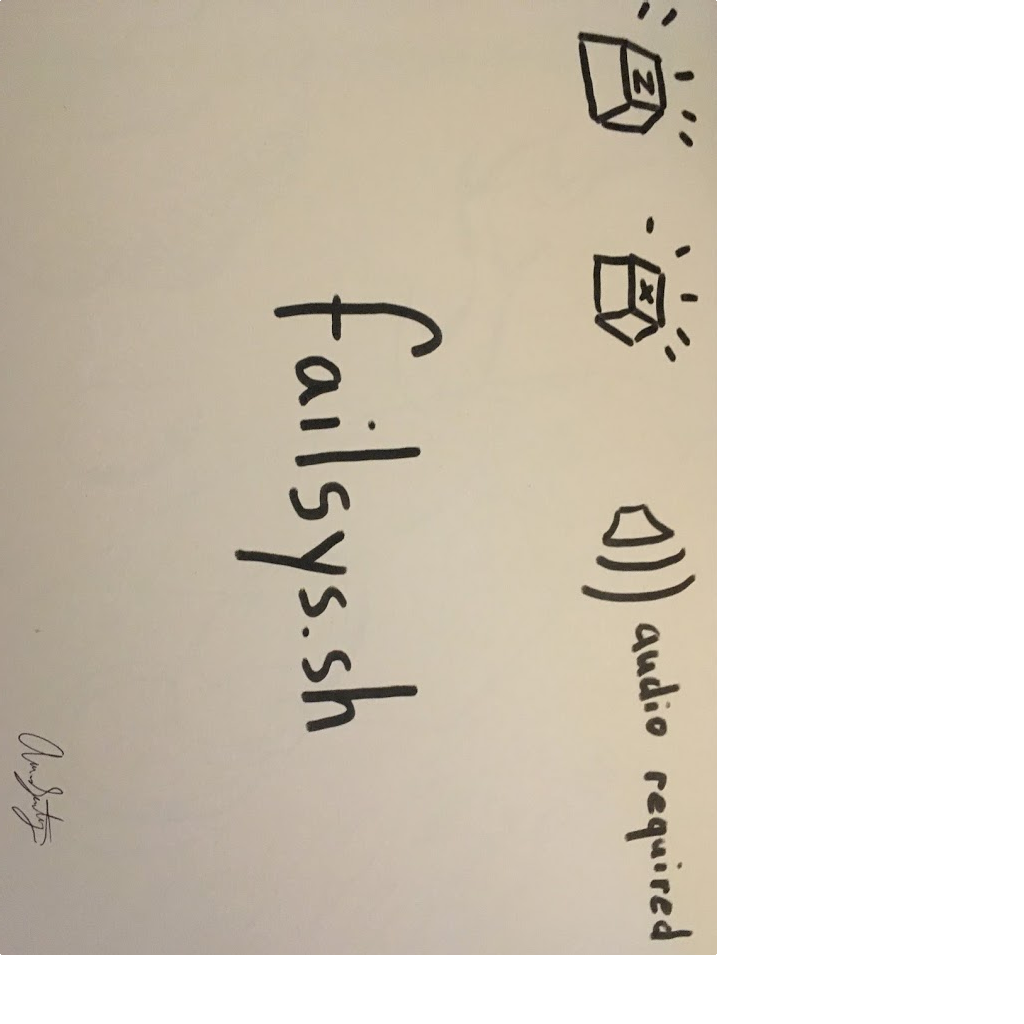 Z
X
audio required
failsys.sh